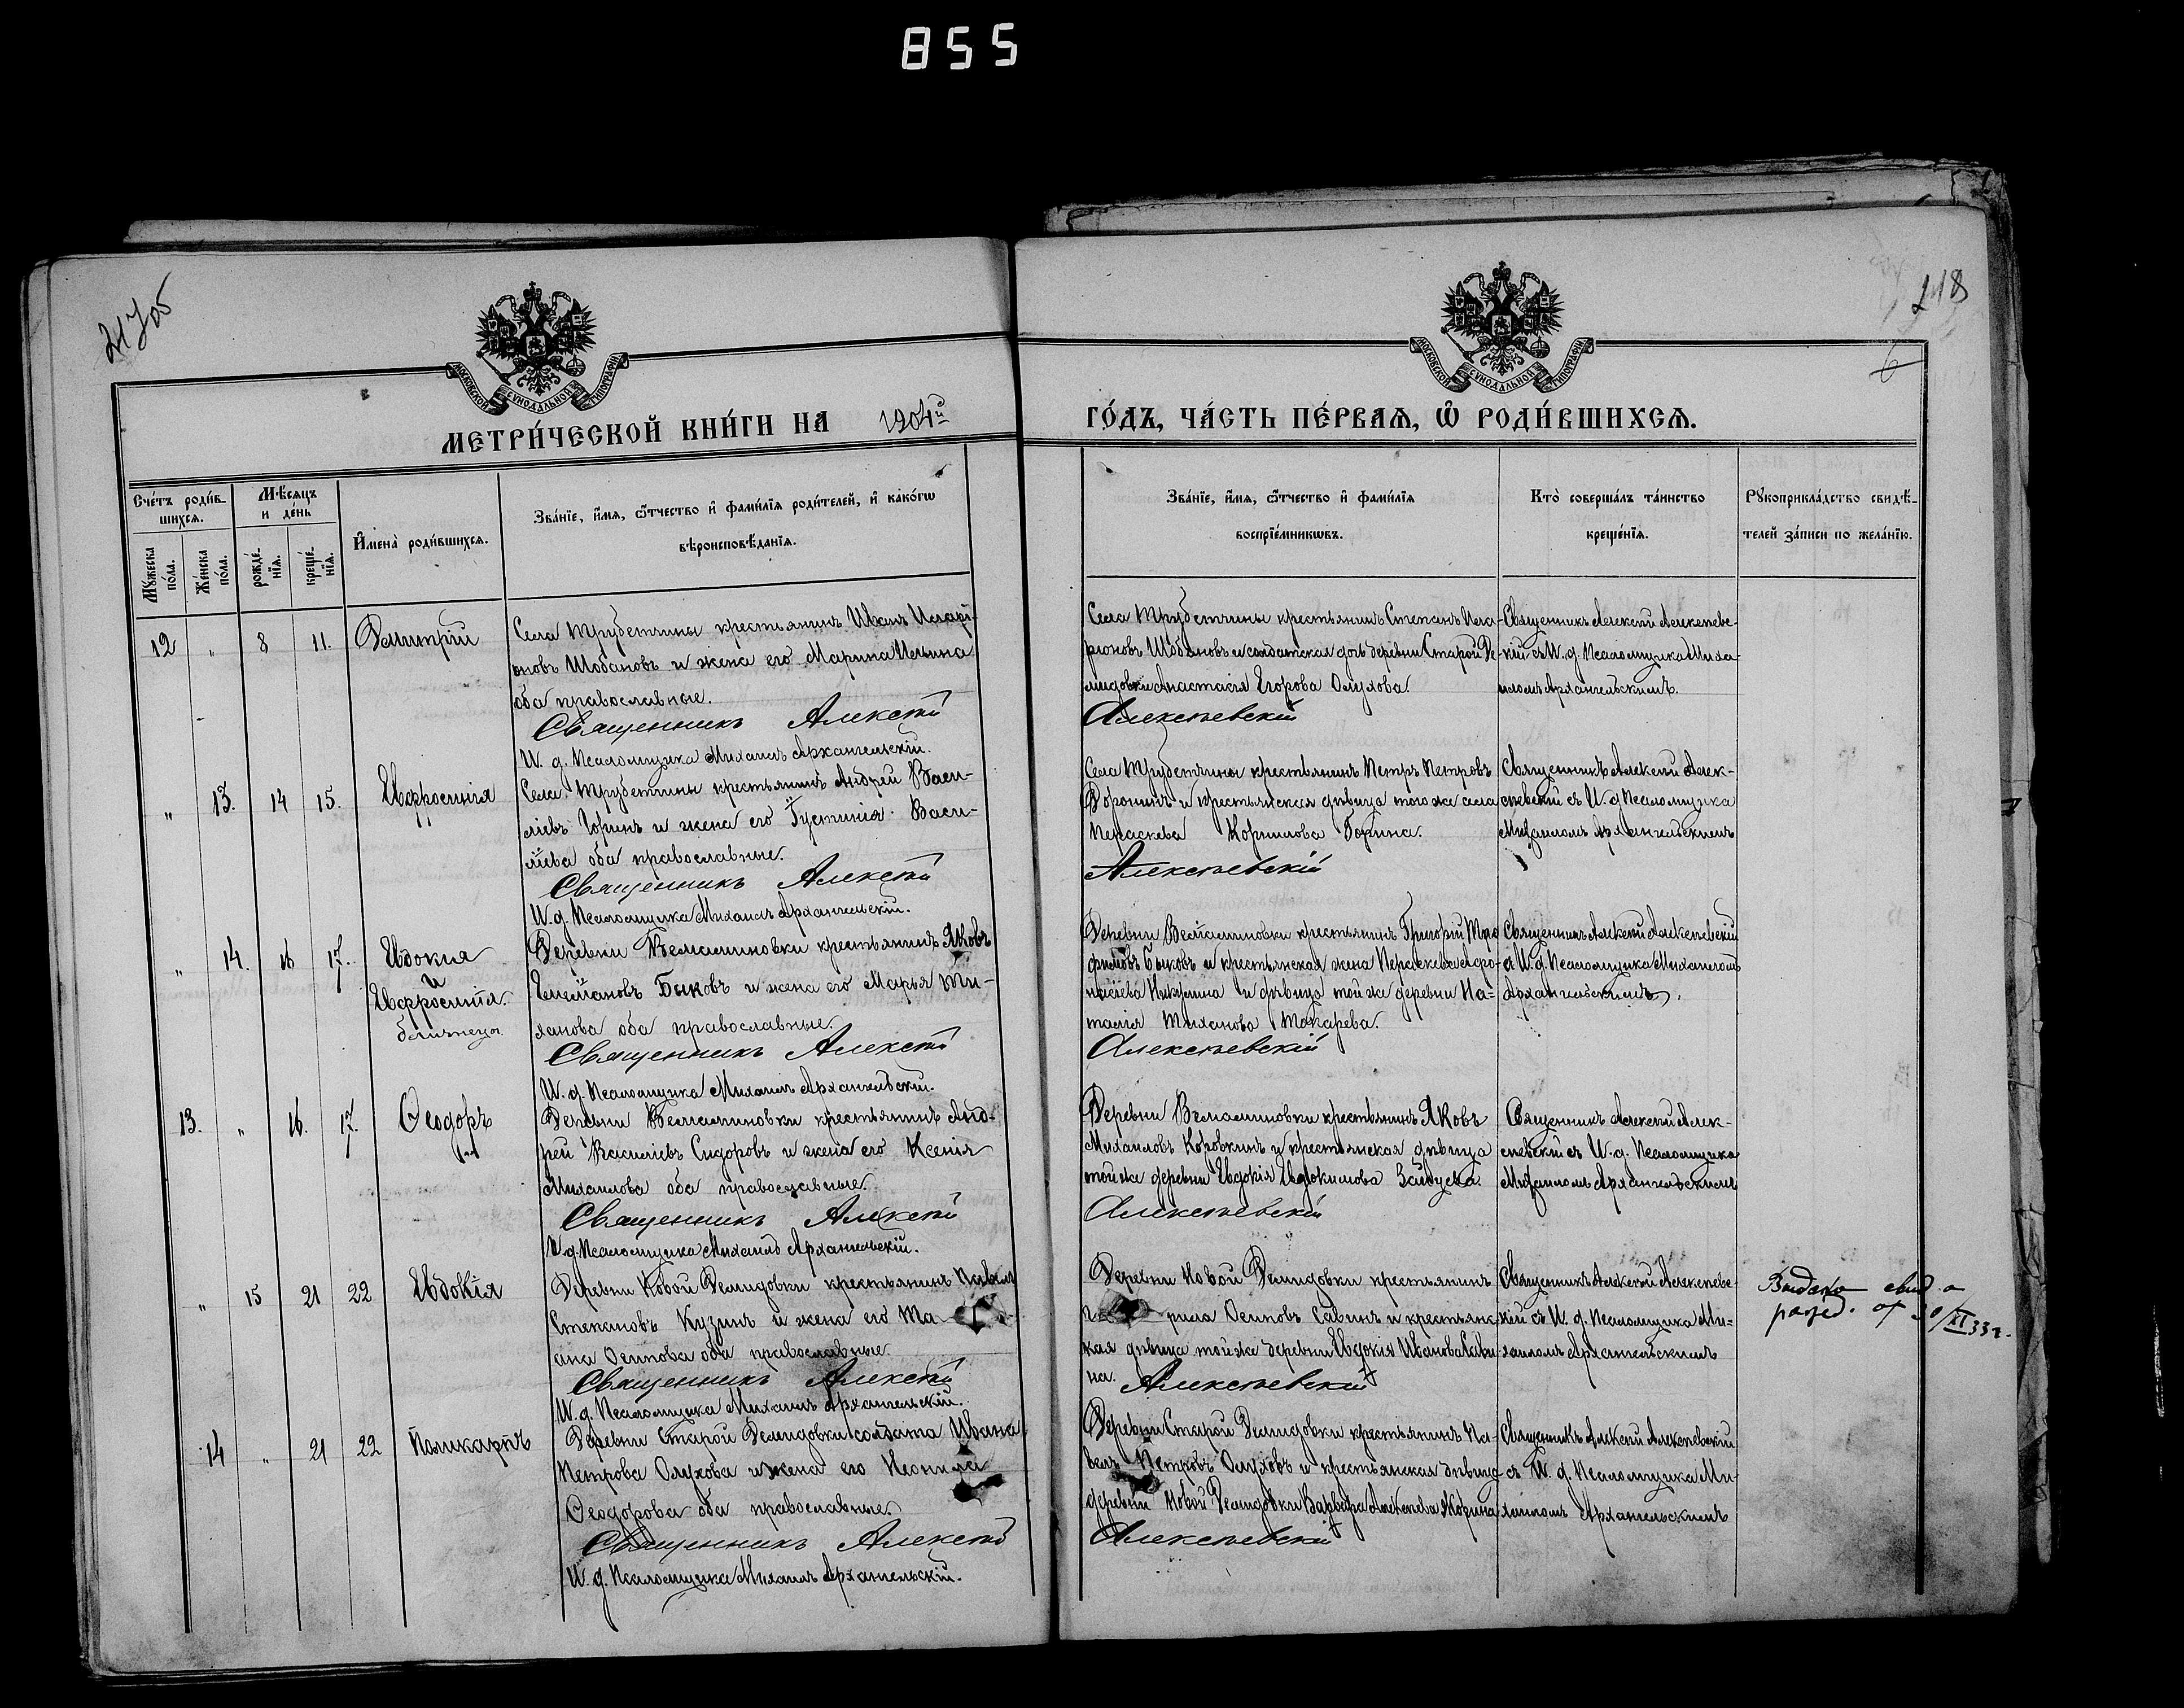 855
218
6
МОСКОВСКОЙ СУНОДАЛЬНОЙ ТИПОГРАФІИ
МОСКОВСКОЙ СУНОДАЛЬНОЙ ТИПОГРАФІИ
МЕТРИ́ЧЕСКОЙ КНИ́ГИ НА 1904й
ГО́ДЪ, ЧА́СТЬ ПЕ́РВАѦ, Ѡ РОДИ́ВШИХСѦ.
Сче́тъ роди́в-
шихсѧ.
Мꙋ́жеска по́ла.
Же́нска по́ла.
Мѣ́сѧцъ и де́нь
рожде́нїѧ.
креще́нїѧ.
И҆мена̀ роди́вшихсѧ.
Зва́нїе, и҆́мѧ, ѻ҆́тчество и҆ фами́лїѧ роди́телей, и҆ како́гѡ
вѣроисповѣ́данїѧ.
Зва́нїе, и҆́мѧ, ѻ҆́тчество и҆ фами́лїѧ
воспрїе́мникѡвъ.
Кто̀ соверша́лъ та́инство
креще́нїѧ.
Рꙋкоприкла́дство свидѣ́-
телей за́писи по жела́нїю.
12 " 8 11. Димитрій
Села Трубетчины крестьянинъ Иванъ Иларі-
оновъ Шобановъ и жена его Марина Ильина
оба православные.
Священникъ Алексѣй
И. д. Псаломщика Михаилъ Архангельскій.
Села Трубетчины крестьянинъ Степанъ Ила-
ріоновъ Шобановъ и солдатская дочь деревни Старой Де-
мидовки Анастасія Егорова Олухова.
Алексѣевскій
Священникъ Алексѣй Алексѣев-
скій съ И. д. Псаломщика Миха-
иломъ Архангельскимъ.
" 13. 14 15. Евфросинія
Села Трубетчины крестьянинъ Андрей Васи-
ліевъ Горинъ и жена его Густинія Васи-
ліева оба православные.
Священникъ Алексѣй
И. д. Псаломщика Михаилъ Архангельскій.
Села Трубетчины крестьянинъ Петръ Петровъ
Воронинъ и крестьянская дѣвица того же села
Параскева Корнилова Горина.
Алексѣевскій
Священникъ Алексѣй Алек-
сѣевскій съ И. д. Псаломщика
Михаиломъ Архангельскимъ
" 14. 16 17. Евдокия
и
Евфросинія.
близнецы.
Деревни Вельяминовки крестьянинъ Яковъ
Емеліановъ Быковъ и жена его Марья Ти-
ханова оба православные.
Священникъ Алексѣй
И. д. Псаломщика Михаилъ Архангельскій.
Деревни Вельяминовки крестьянинъ Григорій Тро-
фимовъ Быковъ и крестьянская жена Параскева Афо-
насіева Никулина и дѣвица той же деревни На-
талія Тиханова Токарева.
Алексѣевскій
Священникъ Алексѣй Алексѣевскій
съ И. д. Псаломщика Михаиломъ
Архангельскимъ.
13. " 16. 17. Ѳеодоръ
Деревни Вельяминовки крестьянинъ Анд-
рей Василіевъ Сидоровъ и жена его Ксенія
Михаилова оба православные.
Священникъ Алексѣй
И. д. Псаломщика Михаилъ Архангельскій.
Деревни Вельяминовки крестьянинъ Яковъ
Михаиловъ Коровкинъ и крестьянская дѣвица
той же деревни Евдокія Евдокимова Зайцева.
Алексѣевскій
Священникъ Алексѣй Алек-
сѣевскій съ И. д. Псаломщика
Михаиломъ Архангельскимъ
" 15 21 22 Евдокія
Деревни Новой Демидовки крестьянинъ Павелъ
Степановъ Кузинъ и жена его Та
ана Осипова оба православные.
Священникъ Алексѣй
И. д. Псаломщика Михаилъ Архангельскій.
Деревни Новой Демидовки крестьянинъ
рила Осиповъ Савинъ и крестьянс-
кая дѣвица той же деревни Евдокія Иванова Сави-
на. Алексѣевскій
Священникъ Алексѣй Алексѣев-
скій съ И. д. Псаломщика Ми-
хаиломъ Архангельскимъ
Выдано свид. о
рожд. от 30/XI 33 г.
14 " 21 22 Поликарпъ
Деревни Старой Демидовки солдата Ивана
Петрова Олухова и жена его Неонила
Ѳеодорова оба православные.
Священникъ Алексѣй
И. д. Псаломщика Михаилъ Архангельскій.
Деревни Старой Демидовки крестьянинъ Па-
велъ Петровъ Олуховъ и крестьянская дѣвица
деревни Новой Демидовки Варвара Алексѣева Жорина
Алексѣевскій
Священникъ Алексѣй Алексѣевскій
съ И. д. Псаломщика Ми-
хаиломъ Архангельскимъ